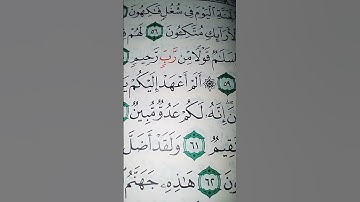 ـنَّةِ ٱلۡيَوۡمَ فِي شُغُلٖ فَٰكِهُونَ
ٱلۡأَرَآئِكِ مُتَّكِـُٔونَ ٥٦ لَهُمۡ
سَلَٰمٞ قَوۡلٗا مِّن رَّبّٖ رَّحِيمٖ
٥٩ ۞ أَلَمۡ أَعۡهَدۡ إِلَيۡكُمۡ
إِنَّهُۥ لَكُمۡ عَدُوّٞ مُّبِينٞ
ـقِيمٞ ٦١ وَلَقَدۡ أَضَلَّ
ـونَ ٦٢ هَٰذِهِۦ جَهَنَّمُ